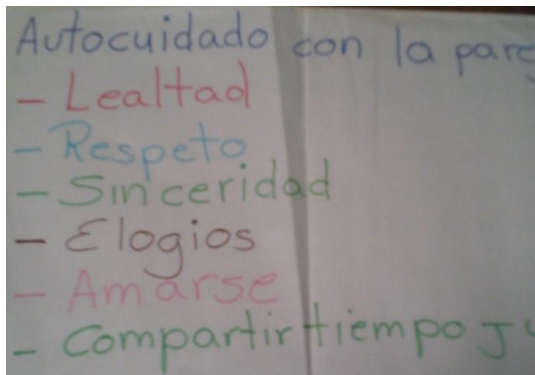 Autocuidado con la pare
- Lealtad
- Respeto
- Sinceridad
- Elogios
- Amarse
- Compartir tiempo Ju